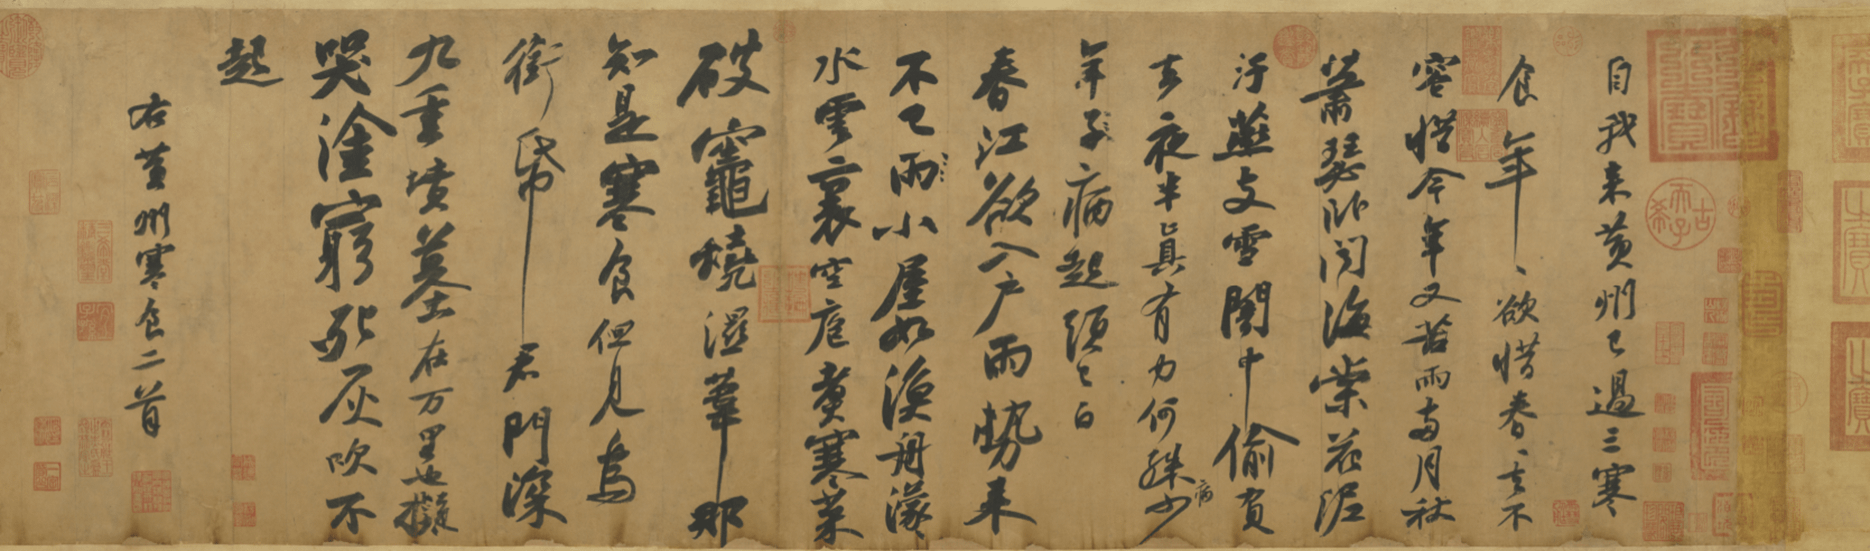 自我来黄州已過三寒
食年、欲惜春、去不
容惜今年又苦雨兩月秋
蕭瑟卧聞海棠花泥
汙燕支雪闇中偷負
去夜半真有力何殊病少
年子病起須已白
春江欲入户雨勢来
不已雨小屋如漁舟濛
水雲裏空庖煮寒菜
破竈燒濕葦那
知是寒食但見烏
銜帋君門深
九重墳墓在万里也擬
哭塗窮死灰吹不
起
右黄州寒食二首
古希天子